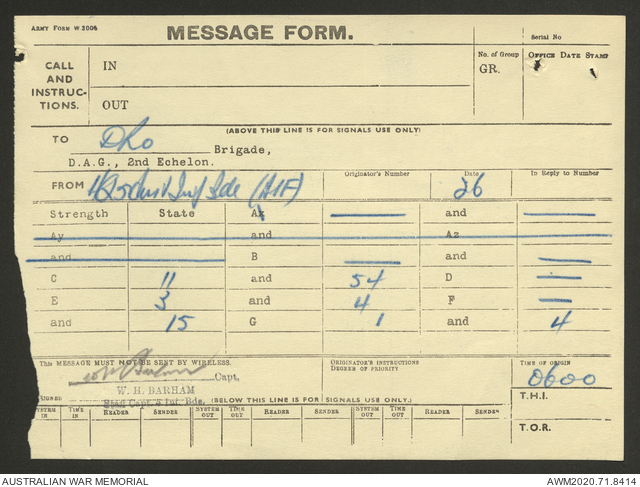 ARMY FORM W 3006
MESSAGE FORM.
Serial No
CALL AND INSTRUC- TIONS.
IN
OUT
No. of Group GR.
OFFICE DATE STAMP
(ABOVE THIS LINE IS FOR SIGNALS USE ONLY)
TO DRo Brigade,
D.A.G., 2nd Echelon.
FROM HQ 5 Aust Inf Bde (AIF)
Originator's Number
Date 26
In Reply to Number
Strength State Ax — and —
Ay and Az
and B — and —
C 11 and 54 D —
E 3 and 4 F —
and 15 G 1 and 4
THIS MESSAGE MUST NOT BE SENT BY WIRELESS.
ORIGINATOR'S INSTRUCTIONS
DEGREE OF PRIORITY
TIME OF ORIGIN
0600
Capt.
W. H. BARHAM
Staff Capt. Inf. Bde.
(BELOW THIS LINE IS FOR SIGNALS USE ONLY)
T.H.I.
TIME IN READER SENDER SYSTEM OUT TIME OUT READER SENDER SYSTEM OUT TIME OUT READER SENDER
T.O.R.
AUSTRALIAN WAR MEMORIAL
AWM2020.71.8414